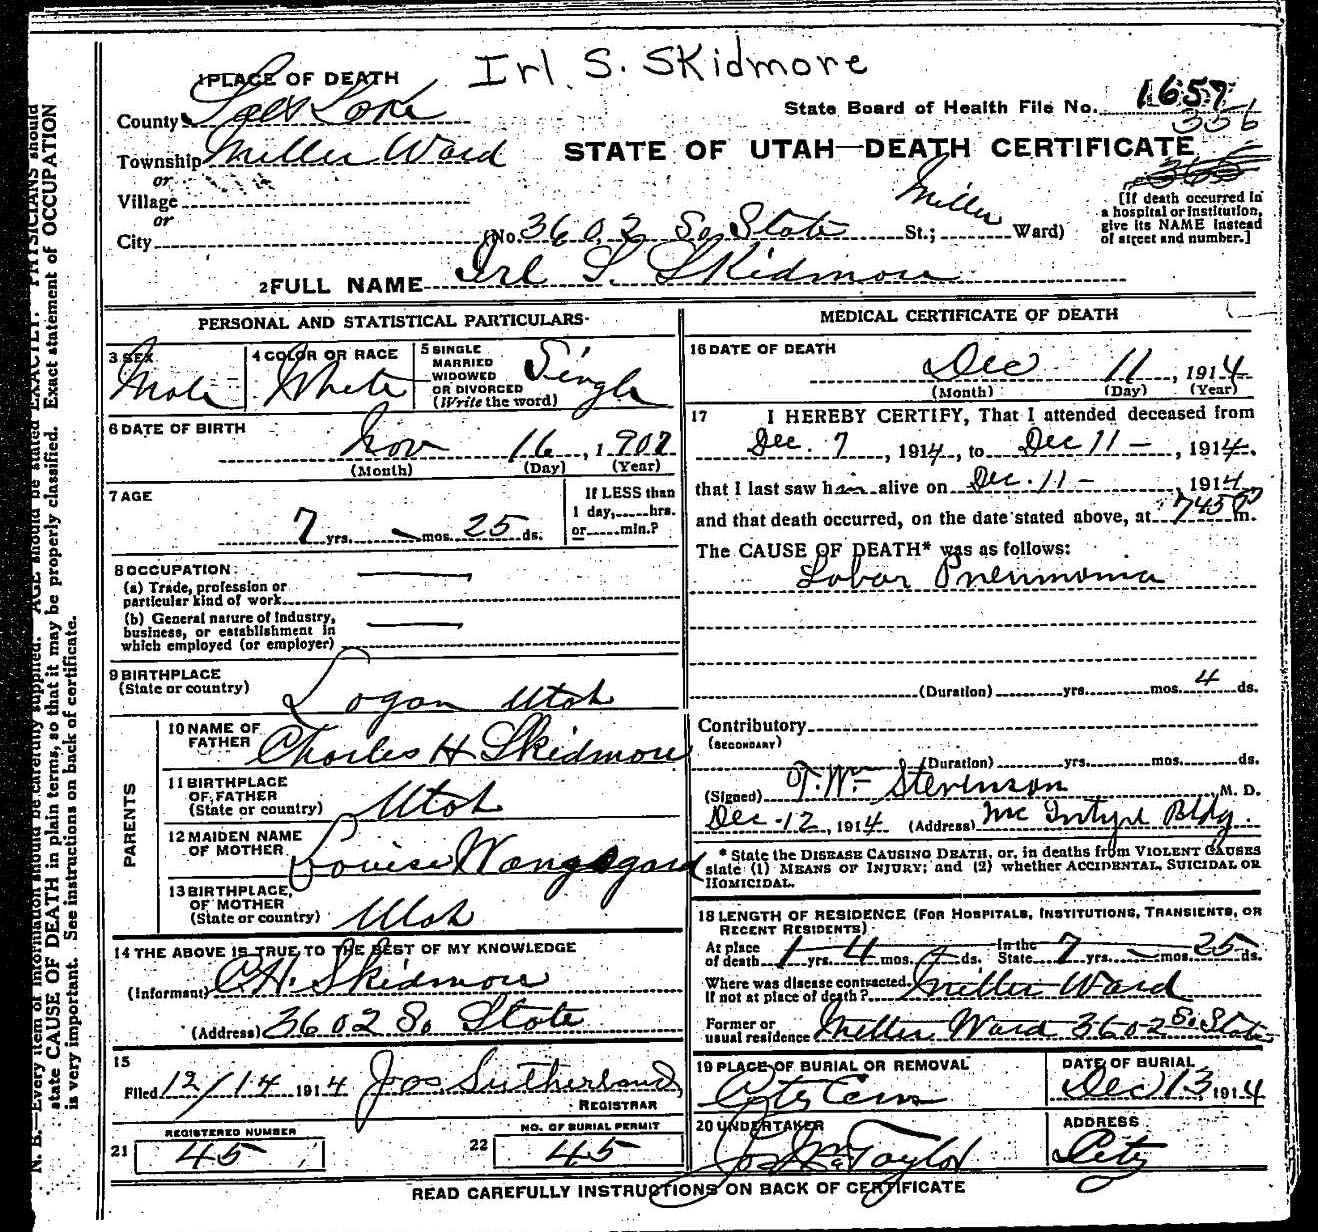 Irl S. Skidmore
1 PLACE OF DEATH
County Salt Lake
State Board of Health File No. 1657
356
Township Miller Ward
STATE OF UTAH—DEATH CERTIFICATE
or
Village
or
City (No. 3602 So. State St.; Miller Ward)
[If death occurred in
a hospital or institution,
give its NAME instead
of street and number.]
2 FULL NAME Irl S. Skidmore
PERSONAL AND STATISTICAL PARTICULARS
3 SEX
Male
4 COLOR OR RACE
White
5 SINGLE
MARRIED
WIDOWED
OR DIVORCED
(Write the word)
Single
6 DATE OF BIRTH
Nov 16, 1907
(Month) (Day) (Year)
7 AGE
7 yrs. — mos. 25 ds.
If LESS than
1 day,.....hrs.
or.....min.?
8 OCCUPATION:
(a) Trade, profession or
particular kind of work
(b) General nature of Industry,
business, or establishment in
which employed (or employer)
9 BIRTHPLACE
(State or country)
Logan Utah
PARENTS
10 NAME OF
FATHER
Charles H Skidmore
11 BIRTHPLACE
OF FATHER
(State or country)
Utah
12 MAIDEN NAME
OF MOTHER
Louise Wangsgard
13 BIRTHPLACE,
OF MOTHER
(State or country)
Utah
14 THE ABOVE IS TRUE TO THE BEST OF MY KNOWLEDGE
(Informant) C.H. Skidmore
(Address) 3602 So State
15
Filed 12/14 1914 Jos. Sutherland,
REGISTRAR
REGISTERED NUMBER
21 45
NO. OF BURIAL PERMIT
22 45
MEDICAL CERTIFICATE OF DEATH
16 DATE OF DEATH
Dec 11, 1914
(Month) (Day) (Year)
17 I HEREBY CERTIFY, That I attended deceased from
Dec. 7, 1914, to Dec 11 -, 1914.
that I last saw him alive on Dec. 11 - 1914
and that death occurred, on the date stated above, at 745 P m.
The CAUSE OF DEATH* was as follows:
Lobar Pneumonia
(Duration) yrs. mos. 4 ds.
Contributory
(SECONDARY)
(Duration) yrs. mos. ds.
(Signed) T. Wm Stevenson, M. D.
Dec - 12, 1914 (Address) Mc Intyre Bldg.
* State the DISEASE CAUSING DEATH, or, in deaths from VIOLENT CAUSES
state (1) MEANS OF INJURY; and (2) whether ACCIDENTAL, SUICIDAL OR
HOMICIDAL.
18 LENGTH OF RESIDENCE (FOR HOSPITALS, INSTITUTIONS, TRANSIENTS, OR
RECENT RESIDENTS)
At place
of death 1 yrs. 4 mos. ds. In the
State 7 yrs. — mos. 25 ds.
Where was disease contracted,
If not at place of death? Miller Ward
Former or
usual residence Miller Ward 3602 So. State
19 PLACE OF BURIAL OR REMOVAL
City Cem
DATE OF BURIAL
Dec 13 1914
20 UNDERTAKER
Jos Wm Taylor
ADDRESS
City
READ CAREFULLY INSTRUCTIONS ON BACK OF CERTIFICATE
N. B.—Every item of information should be carefully supplied. AGE should be stated EXACTLY. PHYSICIANS should
state CAUSE OF DEATH in plain terms, so that it may be properly classified. Exact statement of OCCUPATION
is very important. See instructions on back of certificate.